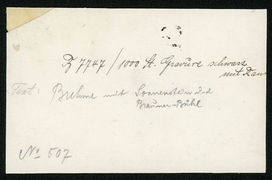 Z 7747 / 1000 St. Gravüre schwarz
mit Rand
Text: Brehme mit Sonnenstein 2-d
Brauner-Bühl
No 507